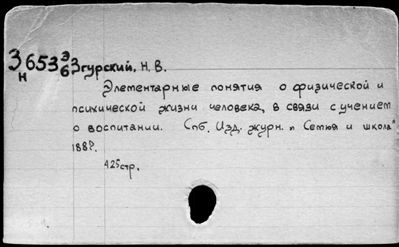 З653 Э/6 Згурский, Н. В.
Н
Элементарные понятия о физической и
психической жизни человека, в связи с учением
о воспитании. Спб. Изд. журн. „Семья и школа"
188?.
425 стр.